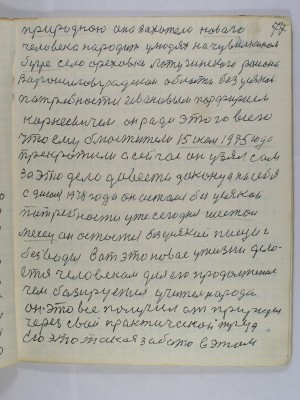 77
природною она захотела новаго
человека народит у людях на чувилкином
бугре село ореховка Лотугинского района
Ворошиловградской области без усякой
патребности ивановым порфирием
корнеевичем. он ради этого всего
что ему бматители 15 июля 1975 года
прекратили а сейчас он узял сам
за это дело довести до конца на себя
с 1978 года он остался без усякой
патребности уже сегодня шестой
месец он остался без усякай пищи с
без воды Вот это новае у жизни дело-
ется человекам для его продолжение
чем базируется учителя народа
он. это все получил от природы
через свой практический труд
Его это такая забота в этом